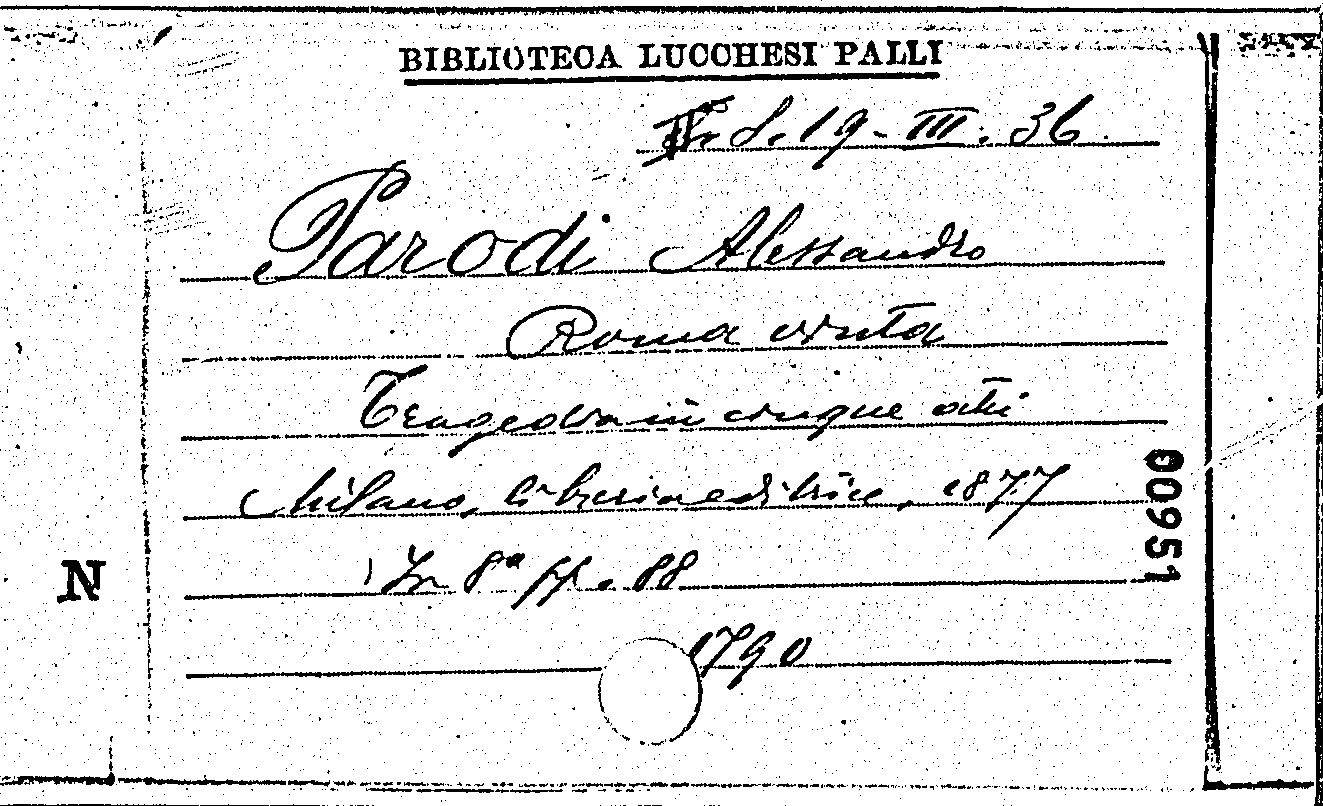 BIBLIOTECA LUCCHESI PALLI
S. 19-III. 36
Parodi Alessandro
Roma vinta
Tragedia in cinque atti
Milano, libreria editrice, 1877
In 8° pp. 88
1790
N
00951